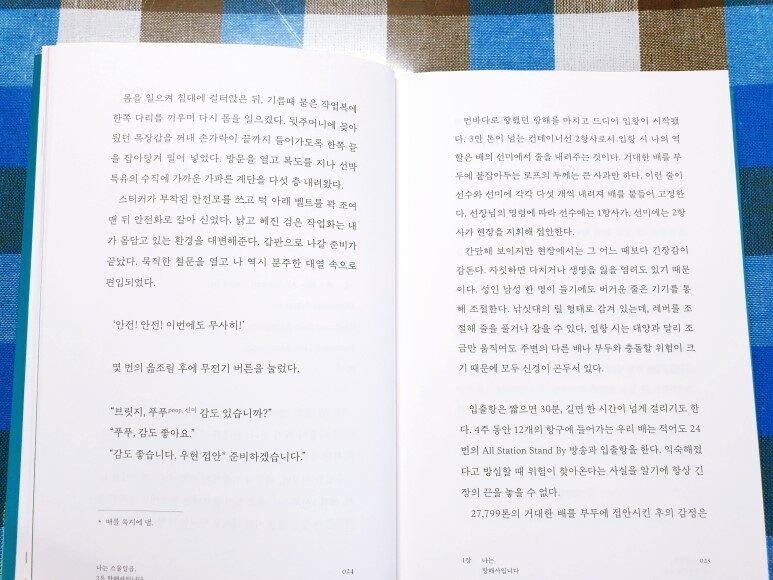 몸을 일으켜 침대에 걸터앉은 뒤, 기름때 묻은 작업복에
한쪽 다리를 끼우며 다시 몸을 일으켰다. 뒷주머니에 꽂아
뒀던 목장갑을 꺼내 손가락이 끝까지 들어가도록 한쪽 끝
을 잡아당겨 밀어 넣었다. 방문을 열고 복도를 지나 선박
특유의 수직에 가까운 가파른 계단을 다섯 층 내려왔다.
스티커가 부착된 안전모를 쓰고 턱 아래 벨트를 꽉 조여
맨 뒤 안전화로 갈아 신었다. 낡고 헤진 검은 작업화는 내
가 몸담고 있는 환경을 대변해준다. 갑판으로 나갈 준비가
끝났다. 묵직한 철문을 열고 나 역시 분주한 대열 속으로
편입되었다.
‘안전! 안전! 이번에도 무사히!’
몇 번의 읊조림 후에 무전기 버튼을 눌렀다.
“브릿지, 푸푸poop, 선미 감도 있습니까?”
“푸푸, 감도 좋아요.”
“감도 좋습니다. 우현 접안* 준비하겠습니다.”
* 배를 육지에 댐.
나는 스물일곱,
2등 항해사입니다
024
먼바다로 향했던 항해를 마치고 드디어 입항이 시작됐
다. 3만 톤이 넘는 컨테이너선 2항사로서 입항 시 나의 역
할은 배의 선미에서 줄을 내려주는 것이다. 거대한 배를 부
두에 붙잡아두는 로프의 두께는 큰 사과만 하다. 이런 줄이
선수와 선미에 각각 다섯 개씩 내려져 배를 붙들어 고정한
다. 선장님의 명령에 따라 선수에는 1항사가, 선미에는 2항
사가 현장을 지휘해 접안한다.
간단해 보이지만 현장에서는 그 어느 때보다 긴장감이
감돈다. 자칫하면 다치거나 생명을 잃을 염려도 있기 때문
이다. 성인 남성 한 명이 들기에도 버거운 줄은 기기를 통
해 조절한다. 낚싯대의 릴 형태로 감겨 있는데, 레버를 조
절해 줄을 풀거나 감을 수 있다. 입항 시는 태양과 달리 조
금만 움직여도 주변의 다른 배나 부두와 충돌할 위험이 크
기 때문에 모두 신경이 곤두서 있다.
입출항은 짧으면 30분, 길면 한 시간이 넘게 걸리기도 한
다. 4주 동안 12개의 항구에 들어가는 우리 배는 적어도 24
번의 All Station Stand By 방송과 입출항을 한다. 익숙해졌
다고 방심할 때 위험이 찾아온다는 사실을 알기에 항상 긴
장의 끈을 놓을 수 없다.
27,799톤의 거대한 배를 부두에 접안시킨 후의 감정은
1장 나는
항해사입니다
025